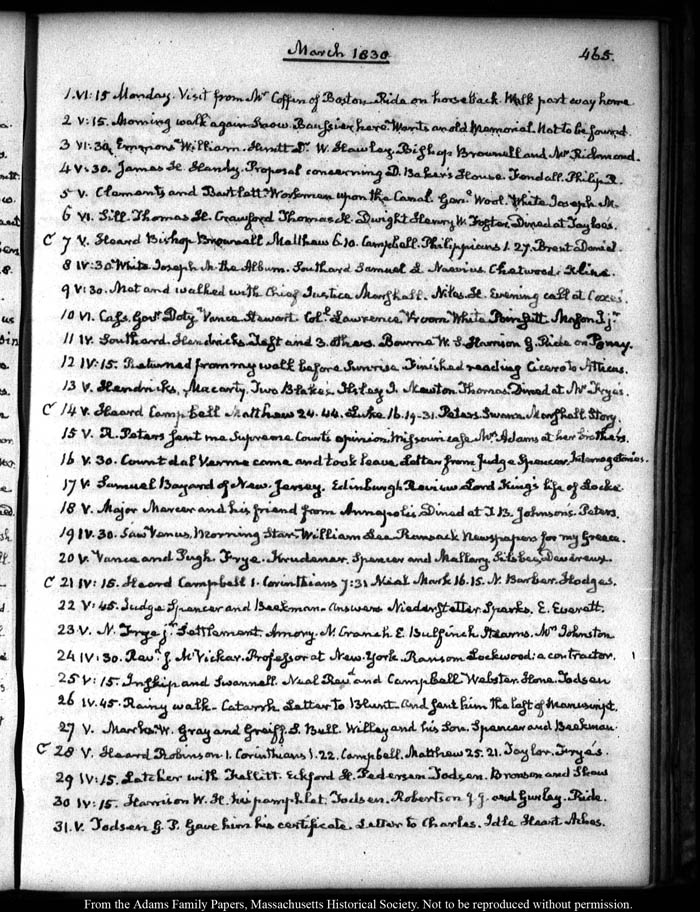 March 1830
465.
1. VI:15 Monday. Visit from Mr Coffin of Boston. Ride on horseback. Walk part way home
2 V:15. Morning walk again Snow. here. Wants an old Memorial. Not to be found.
3 VI:30. Emmons William. Hewitt Dr. W. Hawley. Bishop Brownell and Mr Richmond.
4 V:30. James H. Handy. Proposal concerning D. Baker's House. Fendall. Philip R.
5 V. Clements and Bartlett. Workmen upon the Canal. Genl Wool. White Joseph M.
6 VI. Sill. Thomas H. Crawford Thomas H. Dwight Henry W. Foster. Dined at Tayloe's.
C 7 V. Heard Bishop Brownell Matthew 6.10. Campbell. Philippians 1.27. Brent Daniel.
8 IV:30 White Joseph M. the Album. Southard Samuel L. Naevius. Chetwood: Kline
9 V:30. Met and walked with Chief Justice Marshall. Niles. H. Evening call at Coxe's.
10 VI. Cass, Govr Doty. Vance Stewart. Coll Lawrence. Vroom White Poinsett. Mason J. jr
11 IV. Southard. Hendricks. Taft and 3. others. Bourne W. S. Harrison G. Ride on Poney.
12 IV:15. Returned from my walk before Sunrise. Finished reading Cicero to Atticus.
13 V. Hendricks, Macarty. Two Blakes. Ilsley I. Newton Thomas. Dined at Mr Frye's.
C 14 V. Heard Campbell Matthew 24.44. Luke 16.19-31. Peters. Swann. Marshall. Story.
15 V. R. Peters sent me Supreme Courts opinion Missouri case Mrs. Adams at her brothers.
16 V.30. Count dal Verme came and took leave. Letter from Judge Spencer. Interrogatories.
17 V. Samuel Bayard of New-Jersey. Edinburgh Review Lord King's life of Locke
18 V. Major Mercer and his friend from Annapolis Dined at J. B. Johnson's. Peters.
19 IV.30. Saw Venus, Morning Star. William Lee Ransack Newspapers for my Greece.
20 V. Vance and Pugh. Frye. Krudener. Spencer and Mallary. Silsbee, Devereux
C 21 IV:15. Heard Campbell 1. Corinthians 7:31 Neal Mark 16.15. N. Barber. Hodges.
22 V:45. Judge Spencer and Beekman. Answers Niederstetter. Sparks. E. Everett.
23 V. N. Frye jr. Settlement. Amory. N. Cranch E. Bulfinch Stearns. Mrs Johnston
24 IV:30. Revd J. McVickar. Professor at New-York. Ransom Lockwood: a contractor.
25 V:15. Inskip and Swannell. Neal Revd and Campbell. Webster. Hone. Todsen
26 IV.45. Rainy walk - Catarrh Letter to Blunt. And sent him the last of Manuscript.
27 V. Marks W. Gray and Greiff. S. Bull. Willey and his Son. Spencer and Beekman:
C 28 V. Heard Robinson 1. Corinthians 1.22. Campbell. Matthew 25.21. Taylor. Frye's.
29 IV:15. Letcher with Tallitt. Eckford H. Pedersen Todsen. Bronson and Shaw
30 IV:15. Harrison W. H. his pamphlet. Todsen. Robertson J. J. and Gurley. Ride.
31. V. Todsen G. P. Gave him his certificate. Letter to Charles. Idle Heart Aches.
From the Adams Family Papers, Massachusetts Historical Society. Not to be reproduced without permission.